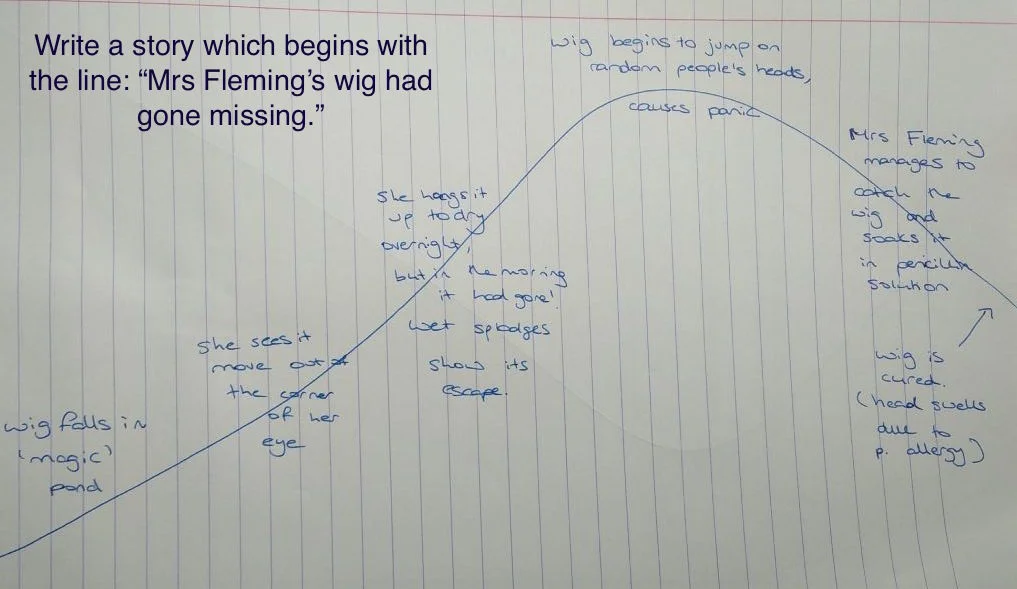 Write a story which begins with
the line: “Mrs Fleming’s wig had
gone missing.”
wig falls in
'magic'
pond
she sees it
move out of
the corner
of her
eye
she hangs it
up to dry
overnight,
but in the morning
it had gone!
wet splodges
show its
escape.
wig begins to jump on
random people's heads,
causes panic
Mrs Fleming
manages to
catch the
wig and
soaks it
in penicillin
solution
wig is
cured.
(head swells
due to
p. allergy)